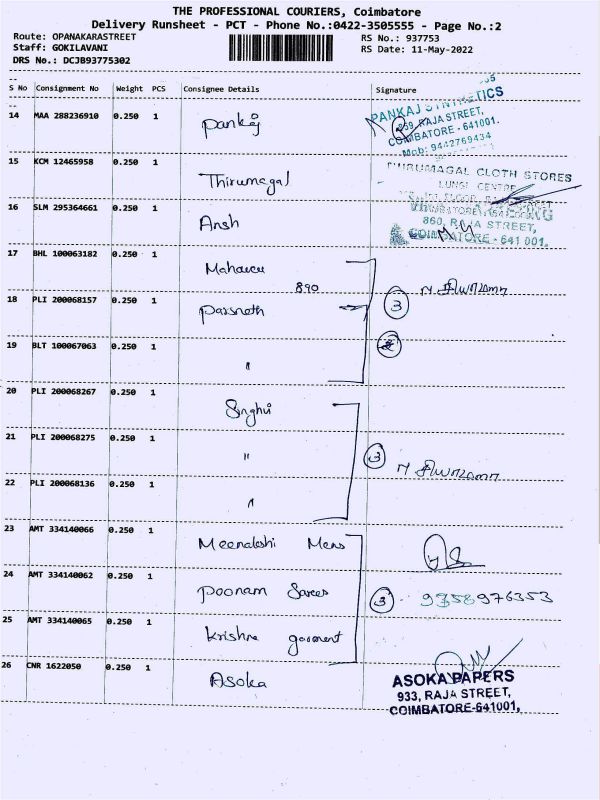 THE PROFESSIONAL COURIERS, Coimbatore
Delivery Runsheet - PCT - Phone No.:0422-3505555 - Page No.:2
Route: OPANAKARASTREET
Staff: GOKILAVANI
DRS No.: DCJB93775302
RS No.: 937753
RS Date: 11-May-2022
S No Consignment No Weight PCS Consignee Details Signature
14 MAA 288236910 0.250 1 Pankaj
PANKAJ SYNTHETICS
869, RAJA STREET,
COIMBATORE - 641001.
Mob: 9442769434
15 KCM 12465958 0.250 1 Thirumagal
THIRUMAGAL CLOTH STORES
LUNGI CENTRE
16 SLM 295364661 0.250 1 Ansh
860, RAJA STREET,
COIMBATORE - 641 001.
17 BHL 100063182 0.250 1 Mahaveer
890
18 PLI 200068157 0.250 1 Parsnath
3
19 BLT 100067063 0.250 1 "
20 PLI 200068267 0.250 1 Singhvi
21 PLI 200068275 0.250 1 "
3
22 PLI 200068136 0.250 1 "
23 AMT 334140066 0.250 1 Meenakshi Mens
24 AMT 334140062 0.250 1 Poonam Sarees
3 9358976353
25 AMT 334140065 0.250 1 Krishna garment
26 CNR 1622050 0.250 1 Asoka
ASOKA PAPERS
933, RAJA STREET,
COIMBATORE-641001.